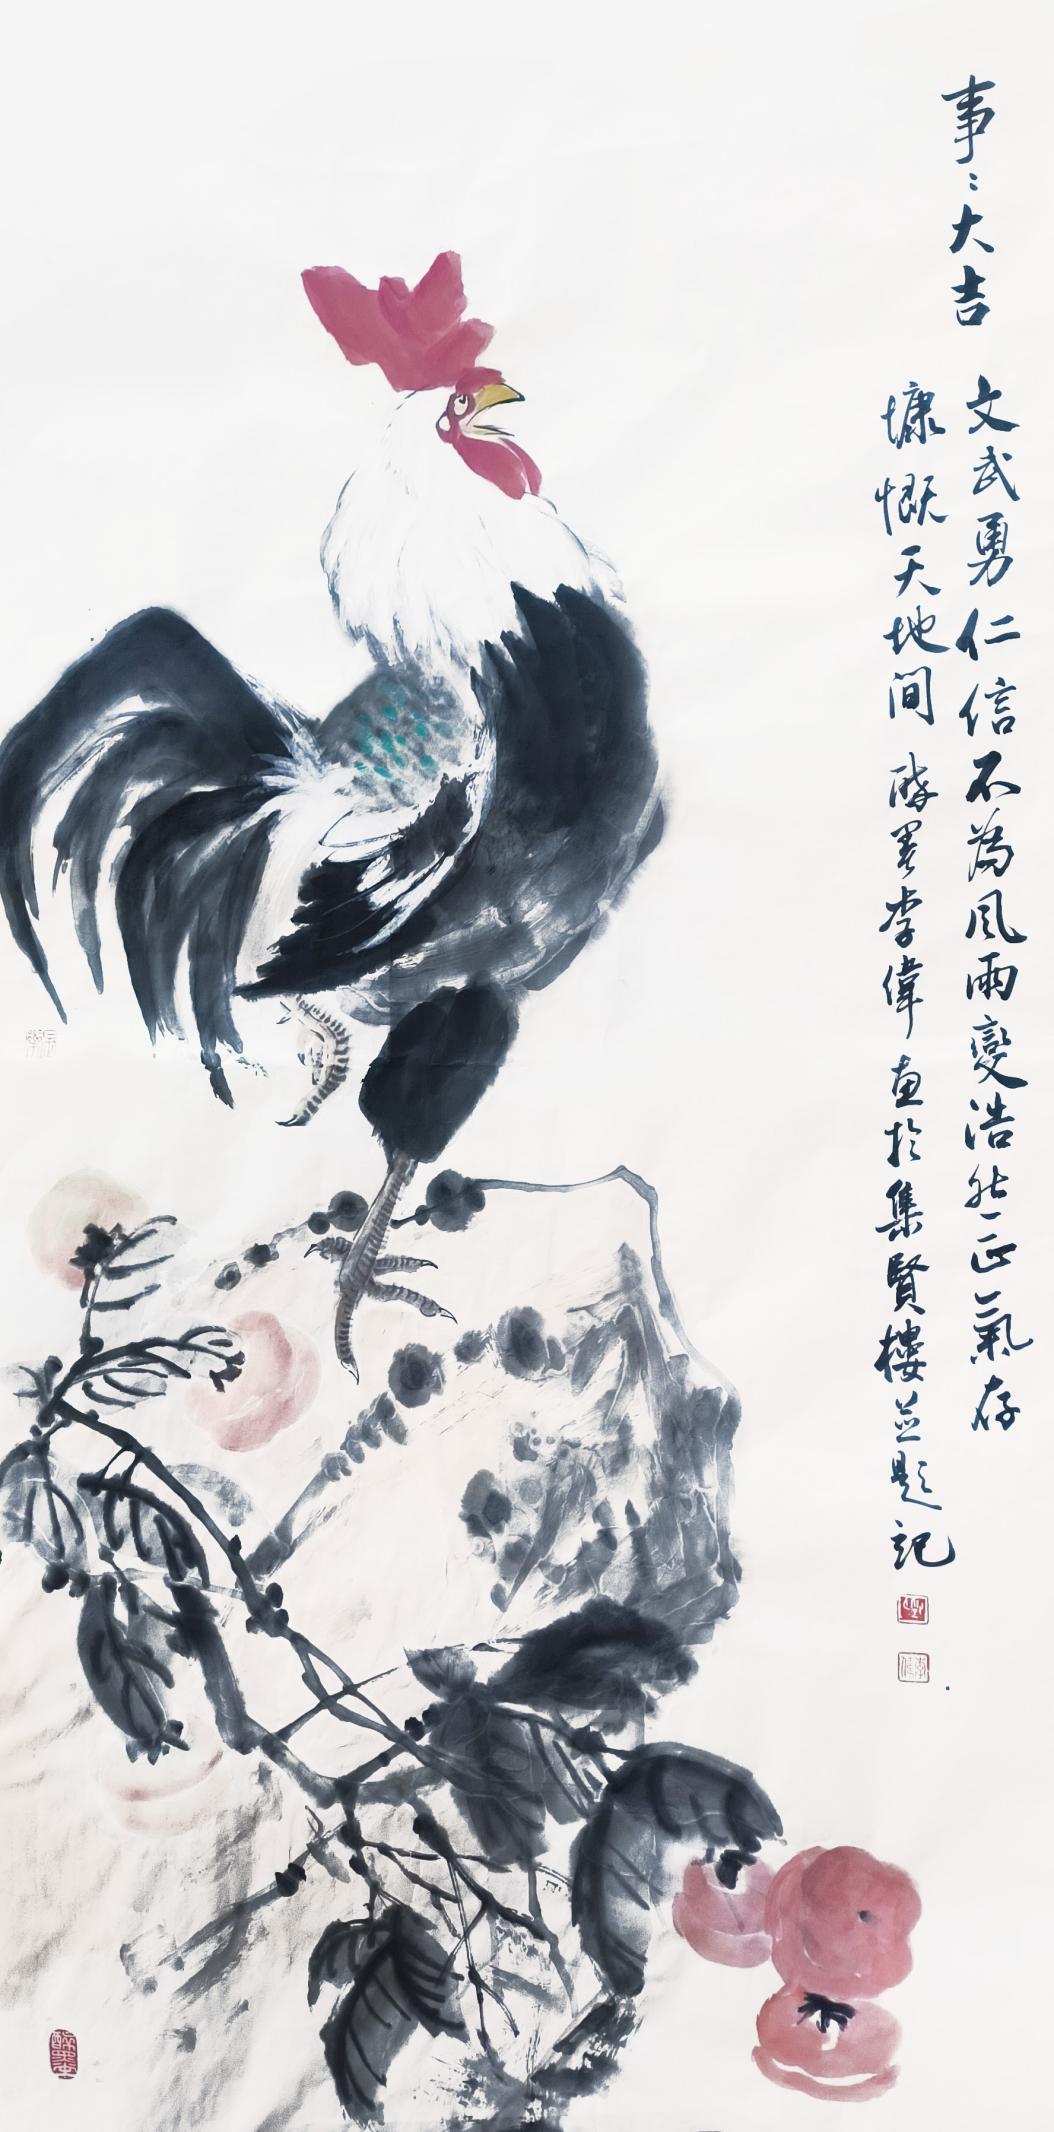 事:大吉
文武勇仁信不為風雨變浩然正氣存
慷慨天地間 醉墨李偉畫於集賢樓並題記
李偉